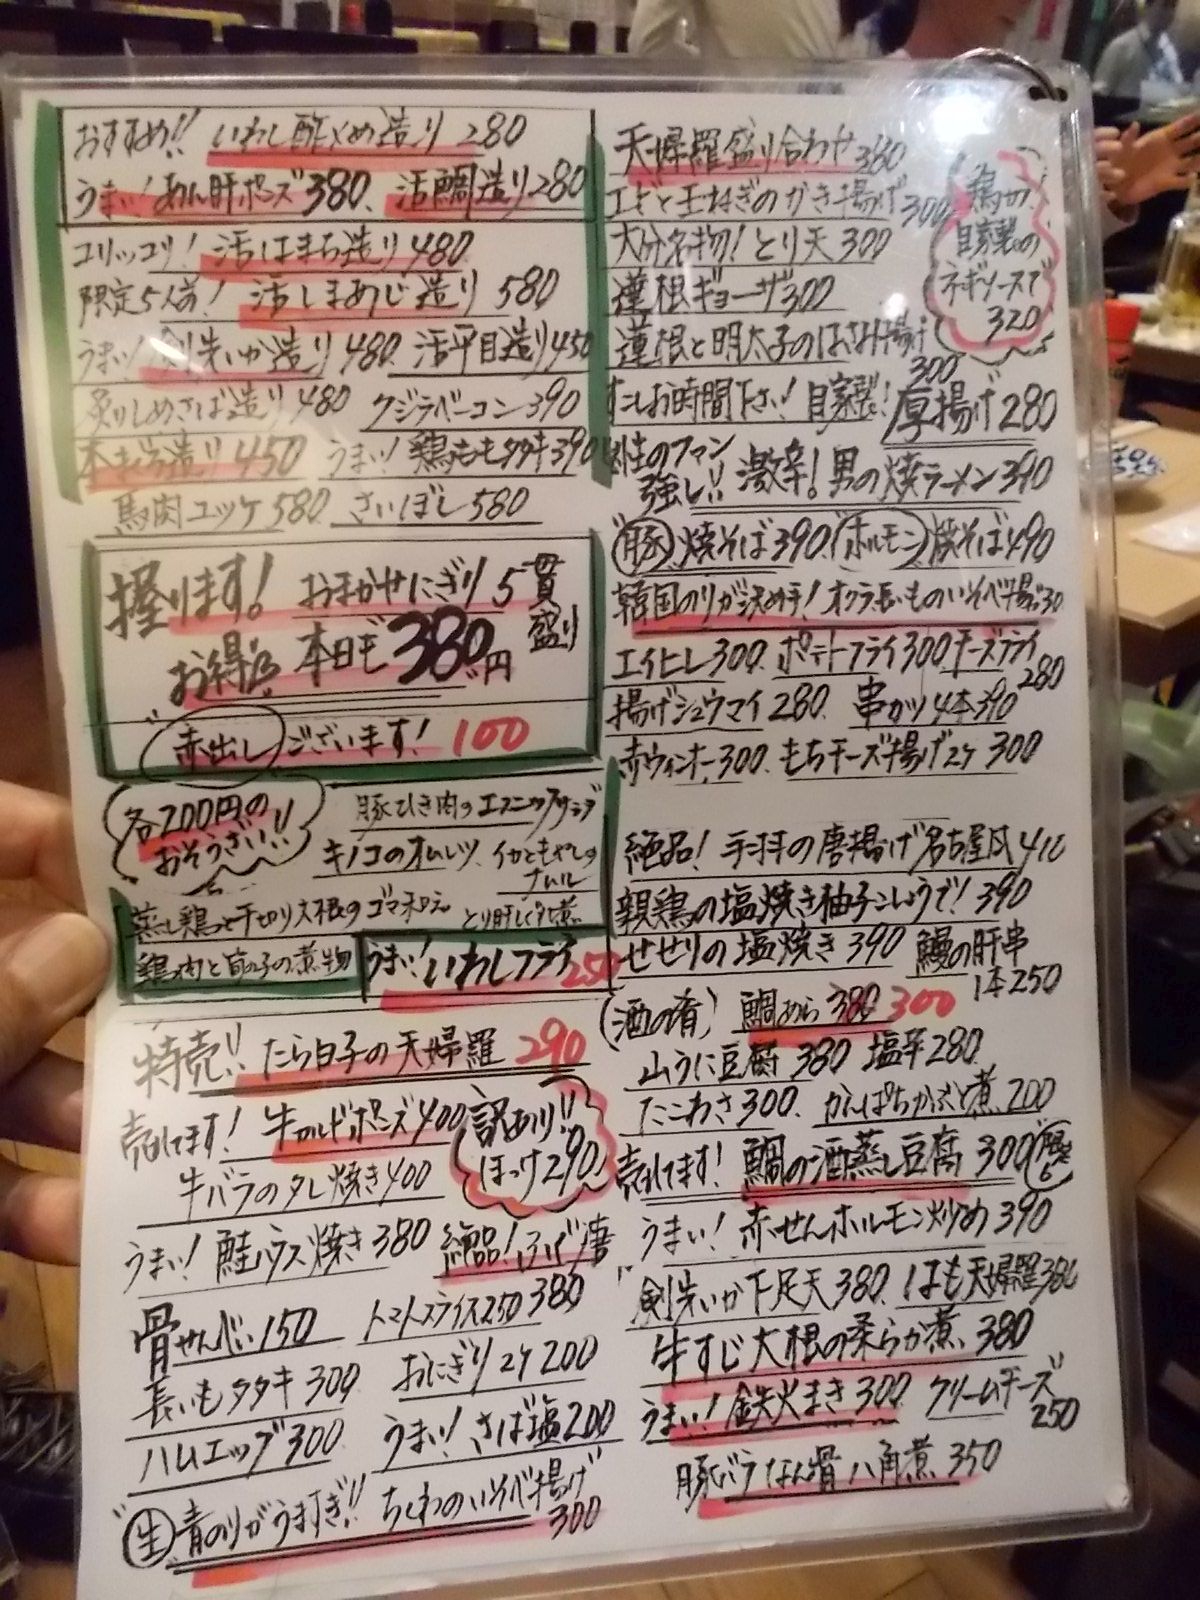 おすすめ!! いわし酢〆め造り 280
うまい! あん肝ポンズ 380、活鯛造り 280
コリッコリ! 活はまち造り 480
限定5人前! 活しまあじ造り 580
うまい! 剣先いか造り 480 活平目造り 450
炙りしめさば造り 480 クジラベーコン 390
本まぐろ造り 450 うまい! 鶏ももタタキ 390
馬肉ユッケ 580 さいぼし 580
握ります! おまかせにぎり 5貫盛り
お得な 本日も 380円
赤出しございます! 100
各200円の
おそうざい!!
豚ひき肉の
キノコのオムレツ、イカともやしの
ナムル
蒸し鶏と千切り大根のゴマ和え とり肝しぐれ煮
鶏肉と筍の子の煮物
うまい! いわしフライ 250
特売!! たら白子の天婦羅 290
売れてます! 牛コールドポンズ 400
訳あり!!
ほっけ 290
牛バラのタレ焼き 400
うまい! 鮭ハラス焼き 380 絶品! ふぐ唐
380
骨せんべい 150 トマトスライス 250
長いもタタキ 300 おにぎり 2ケ 200
ハムエッグ 300 うまい! さば塩 200
"生"青のりがうますぎ!! ちくわのいそべ揚げ
300
天婦羅盛り合わせ 380
エビと玉ねぎのかき揚げ 300
大分名物! とり天 300
蓮根ギョーザ 300
蓮根と明太子のはさみ揚げ
300
鶏カツ
自家製の
ネギソースで
320
すこしお時間下さい! 自家製! 厚揚げ 280
男性のファン
強し!! 激辛! 男の焼ラーメン 390
"豚"焼そば 390 "ホルモン"焼そば 490
韓国のりが決め手! オクラ長いものいそべ揚
エイヒレ 300 ポテトフライ 300 チーズフライ
280
揚げシュウマイ 280 串かツ 4本 390
赤ウィンナー 300 もちチーズ揚げ 2ケ 300
絶品! 手羽の唐揚げ名古屋風
親鶏の塩焼き柚子こしょうで! 390
せせりの塩焼き 390 鰻の肝串
1本 250
(酒の肴) 鯛めら 380 300
山うに豆腐 380 塩辛 280
たこわさ 300 かんぱちかぶと煮 200
売れてます! 鯛の酒蒸し豆腐 300
うまい! 赤せんホルモン炒め 390
剣先いか下足天 380 はも天婦羅 380
牛すじ大根の柔らか煮 380
うまい! 鉄火まき 300 クリームチーズ
250
豚バラなん骨八角煮 350